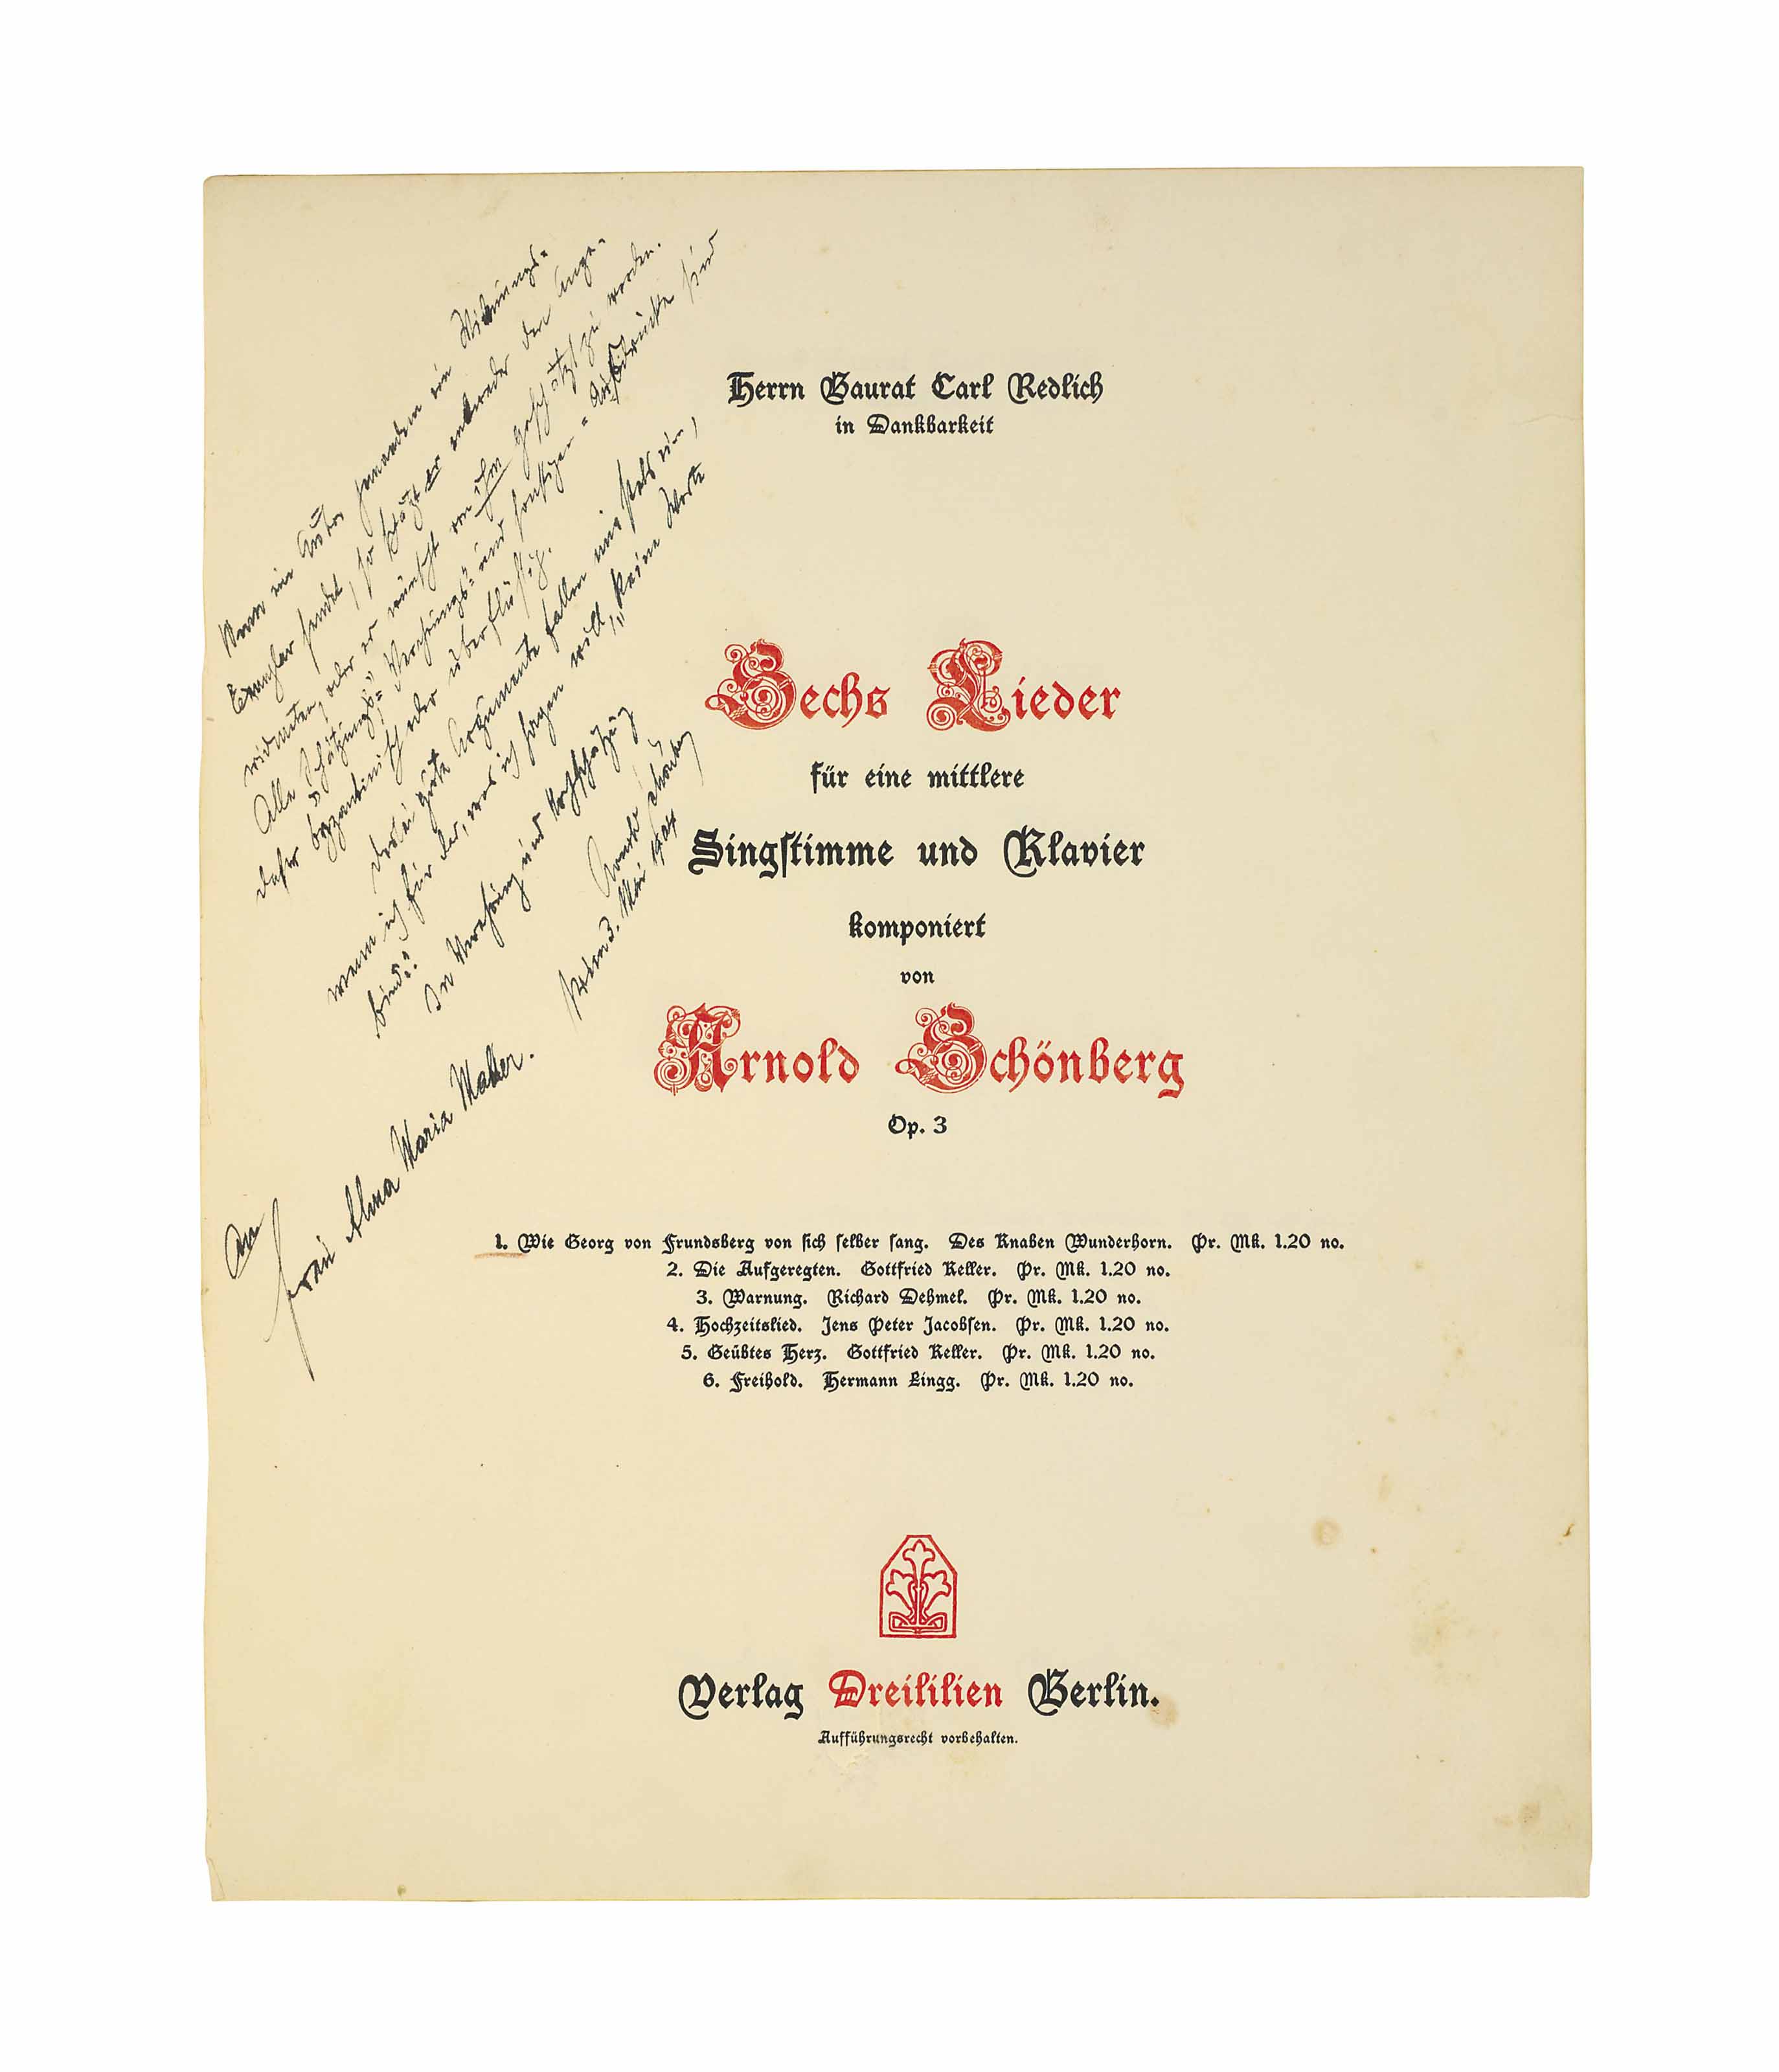 Wenn ein Autor jemanden ein Widmungs-
Exemplar sendet, so er entweder den Ange-
widmeten, oder er wünscht von ihm geschätzt zu werden.
Alle "Schätzungs-" "Verehrungs-" und sonstigen - Ausdrücke sind
daher byzantinisch oder überflüssig.
Derlei gute Argumente fallen mir stets ein,
wenn ich für das, was ich sagen will, "keine Worte
find"!
In Verehrung und Hochschätzung
Arnold Schönberg
Wien 3. Mai 1904
An
Frau Alma Maria Mahler.
Herrn Baurat Carl Redlich
in Dankbarkeit
Sechs Lieder
für eine mittlere
Singstimme und Klavier
komponiert
von
Arnold Schönberg
Op. 3
1. Wie Georg von Frundsberg von sich selber sang. Des Knaben Wunderhorn. Pr. Mk. 1.20 no.
2. Die Aufgeregten. Gottfried Keller. Pr. Mk. 1.20 no.
3. Warnung. Richard Dehmel. Pr. Mk. 1.20 no.
4. Hochzeitslied. Jens Peter Jacobsen. Pr. Mk. 1.20 no.
5. Geübtes Herz. Gottfried Keller. Pr. Mk. 1.20 no.
6. Freihold. Hermann Lingg. Pr. Mk. 1.20 no.
Verlag Dreililien Berlin.
Aufführungsrecht vorbehalten.